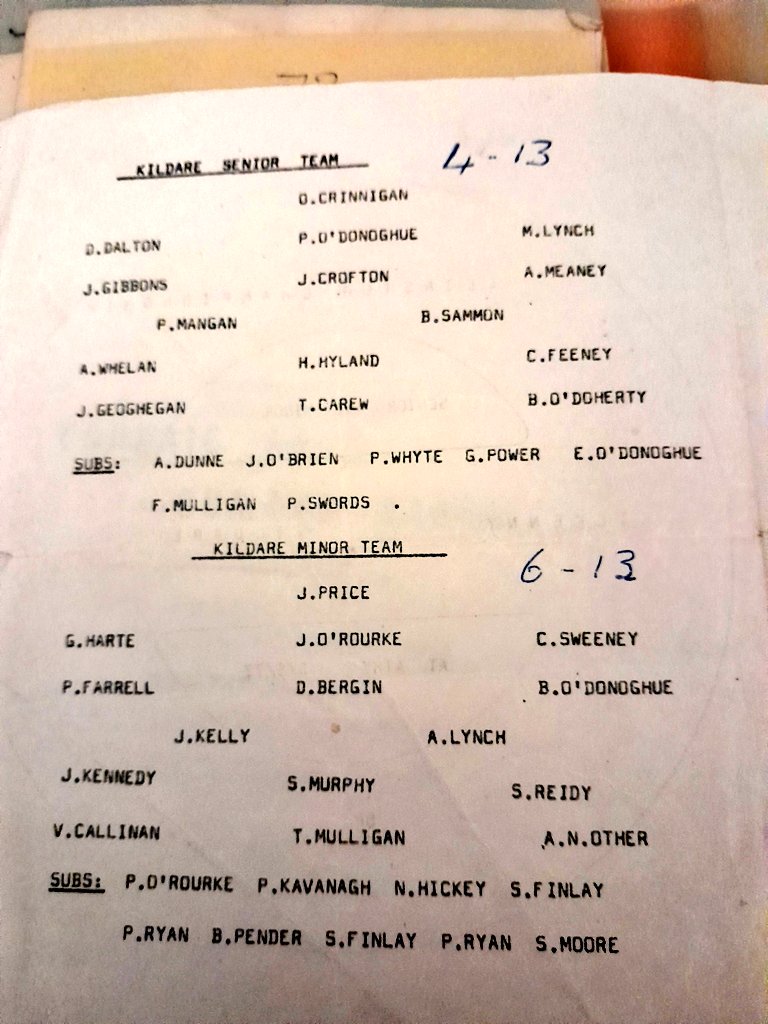 KILDARE SENIOR TEAM 4-13
O.CRINNIGAN
D.DALTON P.O'DONOGHUE M.LYNCH
J.GIBBONS J.CROFTON A.MEANEY
P.MANGAN B.SAMMON
A.WHELAN H.HYLAND C.FEENEY
J.GEOGHEGAN T.CAREW B.O'DOHERTY
SUBS: A.DUNNE J.O'BRIEN P.WHYTE G.POWER E.O'DONOGHUE
F.MULLIGAN P.SWORDS .
KILDARE MINOR TEAM 6-13
J.PRICE
G.HARTE J.O'ROURKE C.SWEENEY
P.FARRELL D.BERGIN B.O'DONOGHUE
J.KELLY A.LYNCH
J.KENNEDY S.MURPHY S.REIDY
V.CALLINAN T.MULLIGAN A.N.OTHER
SUBS: P.O'ROURKE P.KAVANAGH N.HICKEY S.FINLAY
P.RYAN B.PENDER S.FINLAY P.RYAN S.MOORE